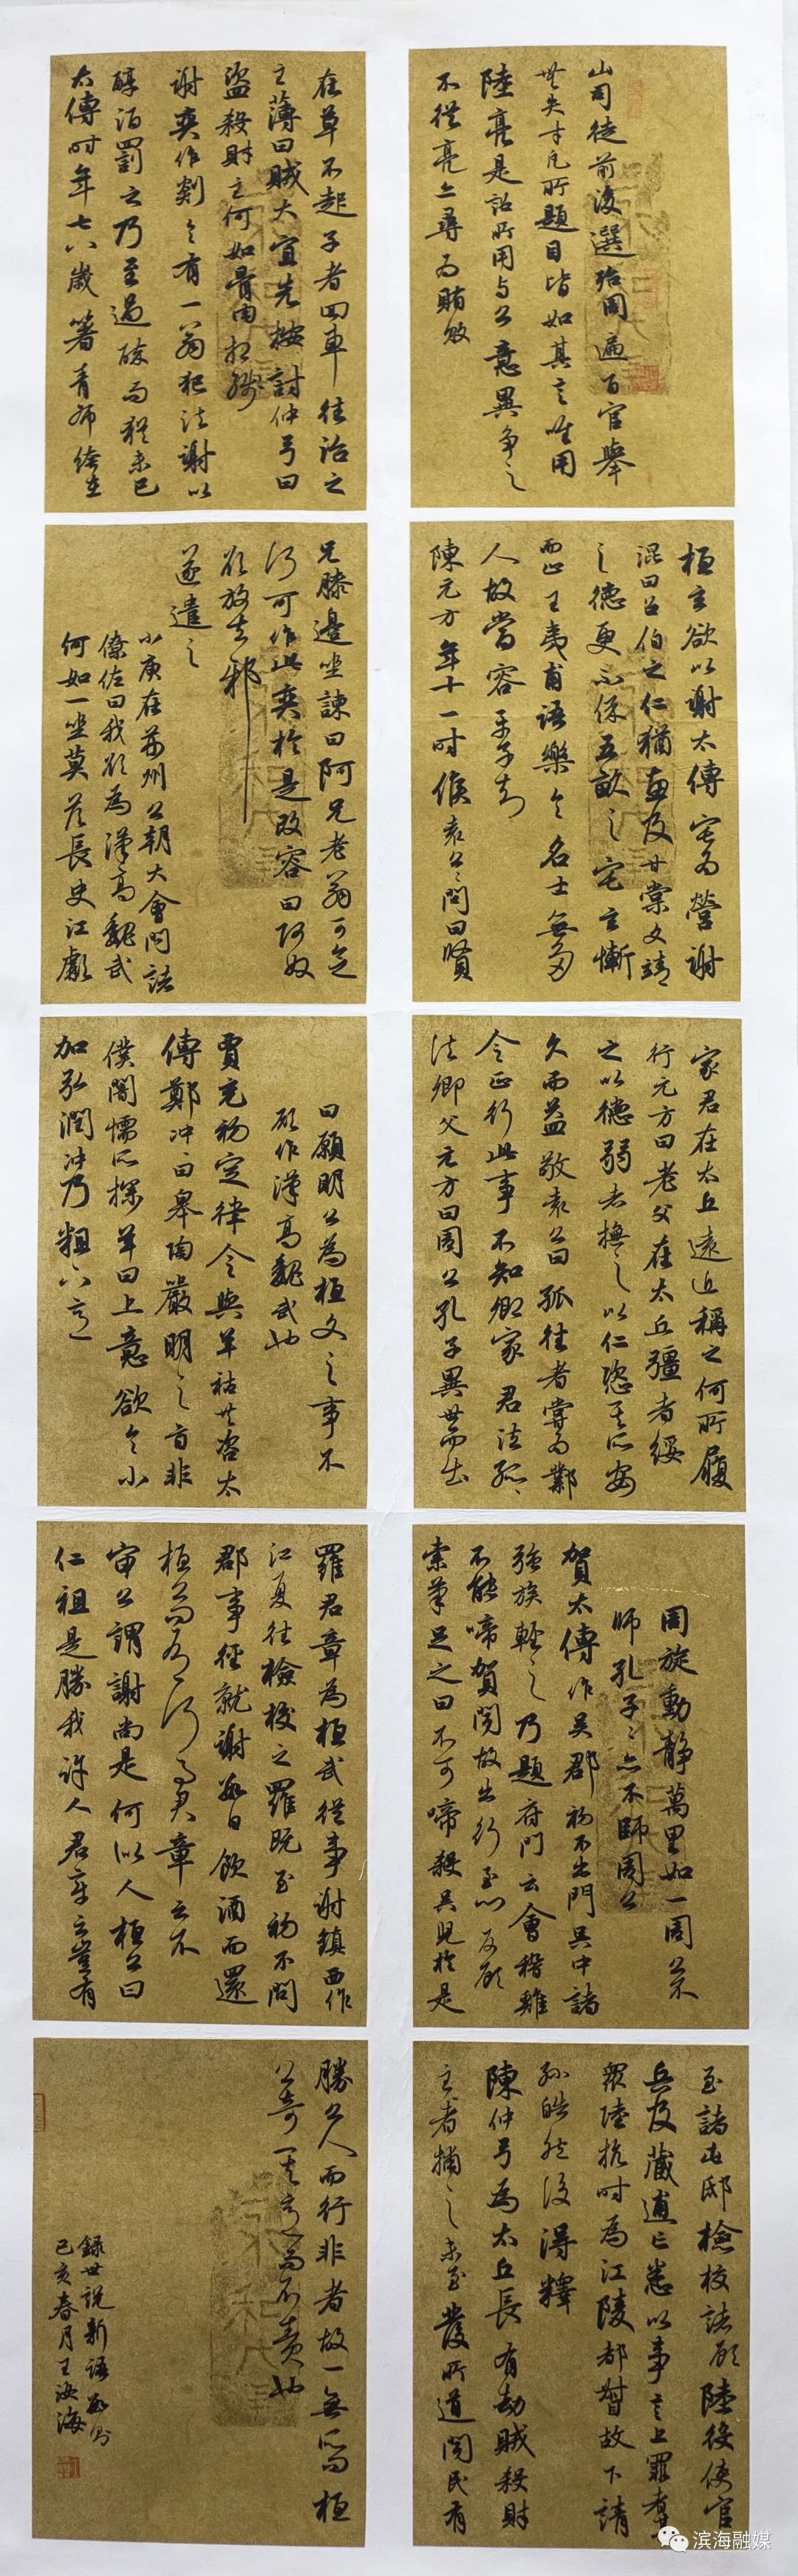 山司徒前後選殆周遍百官舉
無失才凡所題目皆如其言唯用
陸亮是詔所用与公意異争之
不從亮亦尋为賄敗
桓玄欲以謝太傅宅为營謝
混曰召伯之仁猶惠及甘棠文靖
之德更不保五畝之宅玄慚
而止王夷甫語樂令名士無多
人故當容平子知
陳元方年十一時候袁公公問曰賢
家君在太丘遠近稱之何所履
行元方曰老父在太丘彊者綏
之以德弱者撫之以仁恣其所安
久而益敬袁公曰孤往者嘗为鄴
令正行此事不知卿家君法孤孤
法卿父元方曰周公孔子異世而出
周旋動静萬里如一周公不
師孔子孔子亦不師周公
賀太傅作吳郡初不出門吳中諸
强族輕之乃題府門云會稽雞
不能啼賀聞故出行至门反顧
索筆足之曰不可啼殺吳兒於是
至諸屯邸檢校諸顧陸役使官
兵及藏逋亡悉以事言上罪者甚
眾陸抗時為江陵都督故下請
孫皓然後得釋
陳仲弓為太丘長有劫賊殺財
主者捕之未至發所道聞民有
在草不起子者回車往治之
主薄曰賊大宜先按討仲弓曰
盜殺財主何如骨肉相殘
謝奕作剡令有一翁犯法謝以
醇酒罰之乃至過醉而猶未已
太傅時年七八歲著青布絝在
兄膝邊坐諫曰阿兄老翁可念
何可作此奕於是改容曰阿奴
欲放去邪
遂遣之
小庾在荊州公朝大會問諸
僚佐曰我欲為漢高魏武
何如一坐莫答長史江虨
曰願明公為桓文之事不
願作漢高魏武也
賈充初定律令與羊祜共咨太
傅鄭冲冲曰皋陶嚴明之旨非
僕闇懦所探羊曰上意欲令小
加弘潤冲乃粗下意
羅君章為桓武從事謝鎮西作
江夏往檢校之羅既至初不問
郡事徑就謝數日飲酒而還
桓公问有何事君章云不
審公謂謝尚是何似人桓公曰
仁祖是勝我許人君章云豈有
勝公人而行非者故一無所问桓
公奇其意而不責也
錄世說新語数则
己亥春月王汝海
滨海融媒